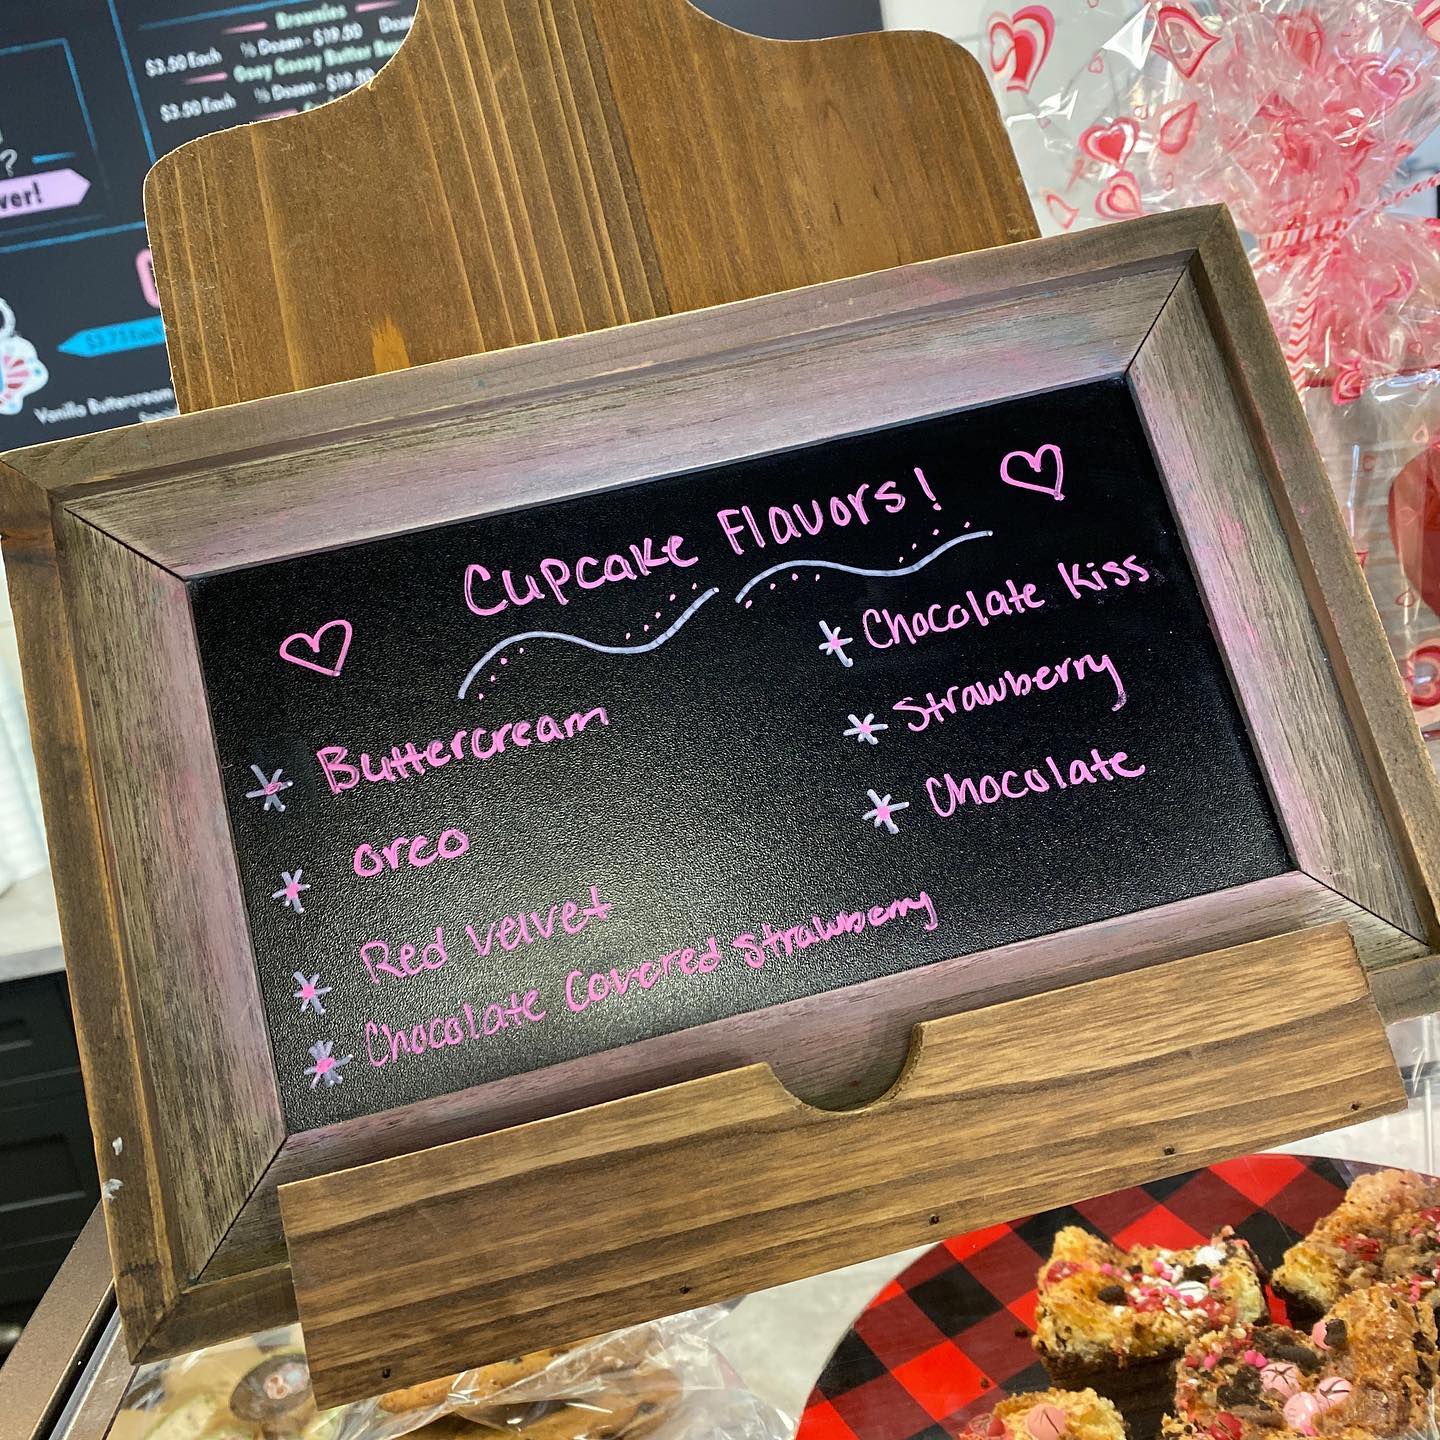 Brownies
$3.50 Each ½ Dozen - $19.50
Ooey Gooey Butter
$3.50 Each ½ Dozen - $19.50
?
ver!
$3.75 Each
Vanilla Buttercream
Cupcake Flavors!
Buttercream
oreo
Red velvet
Chocolate Covered Strawberry
Chocolate Kiss
Strawberry
Chocolate